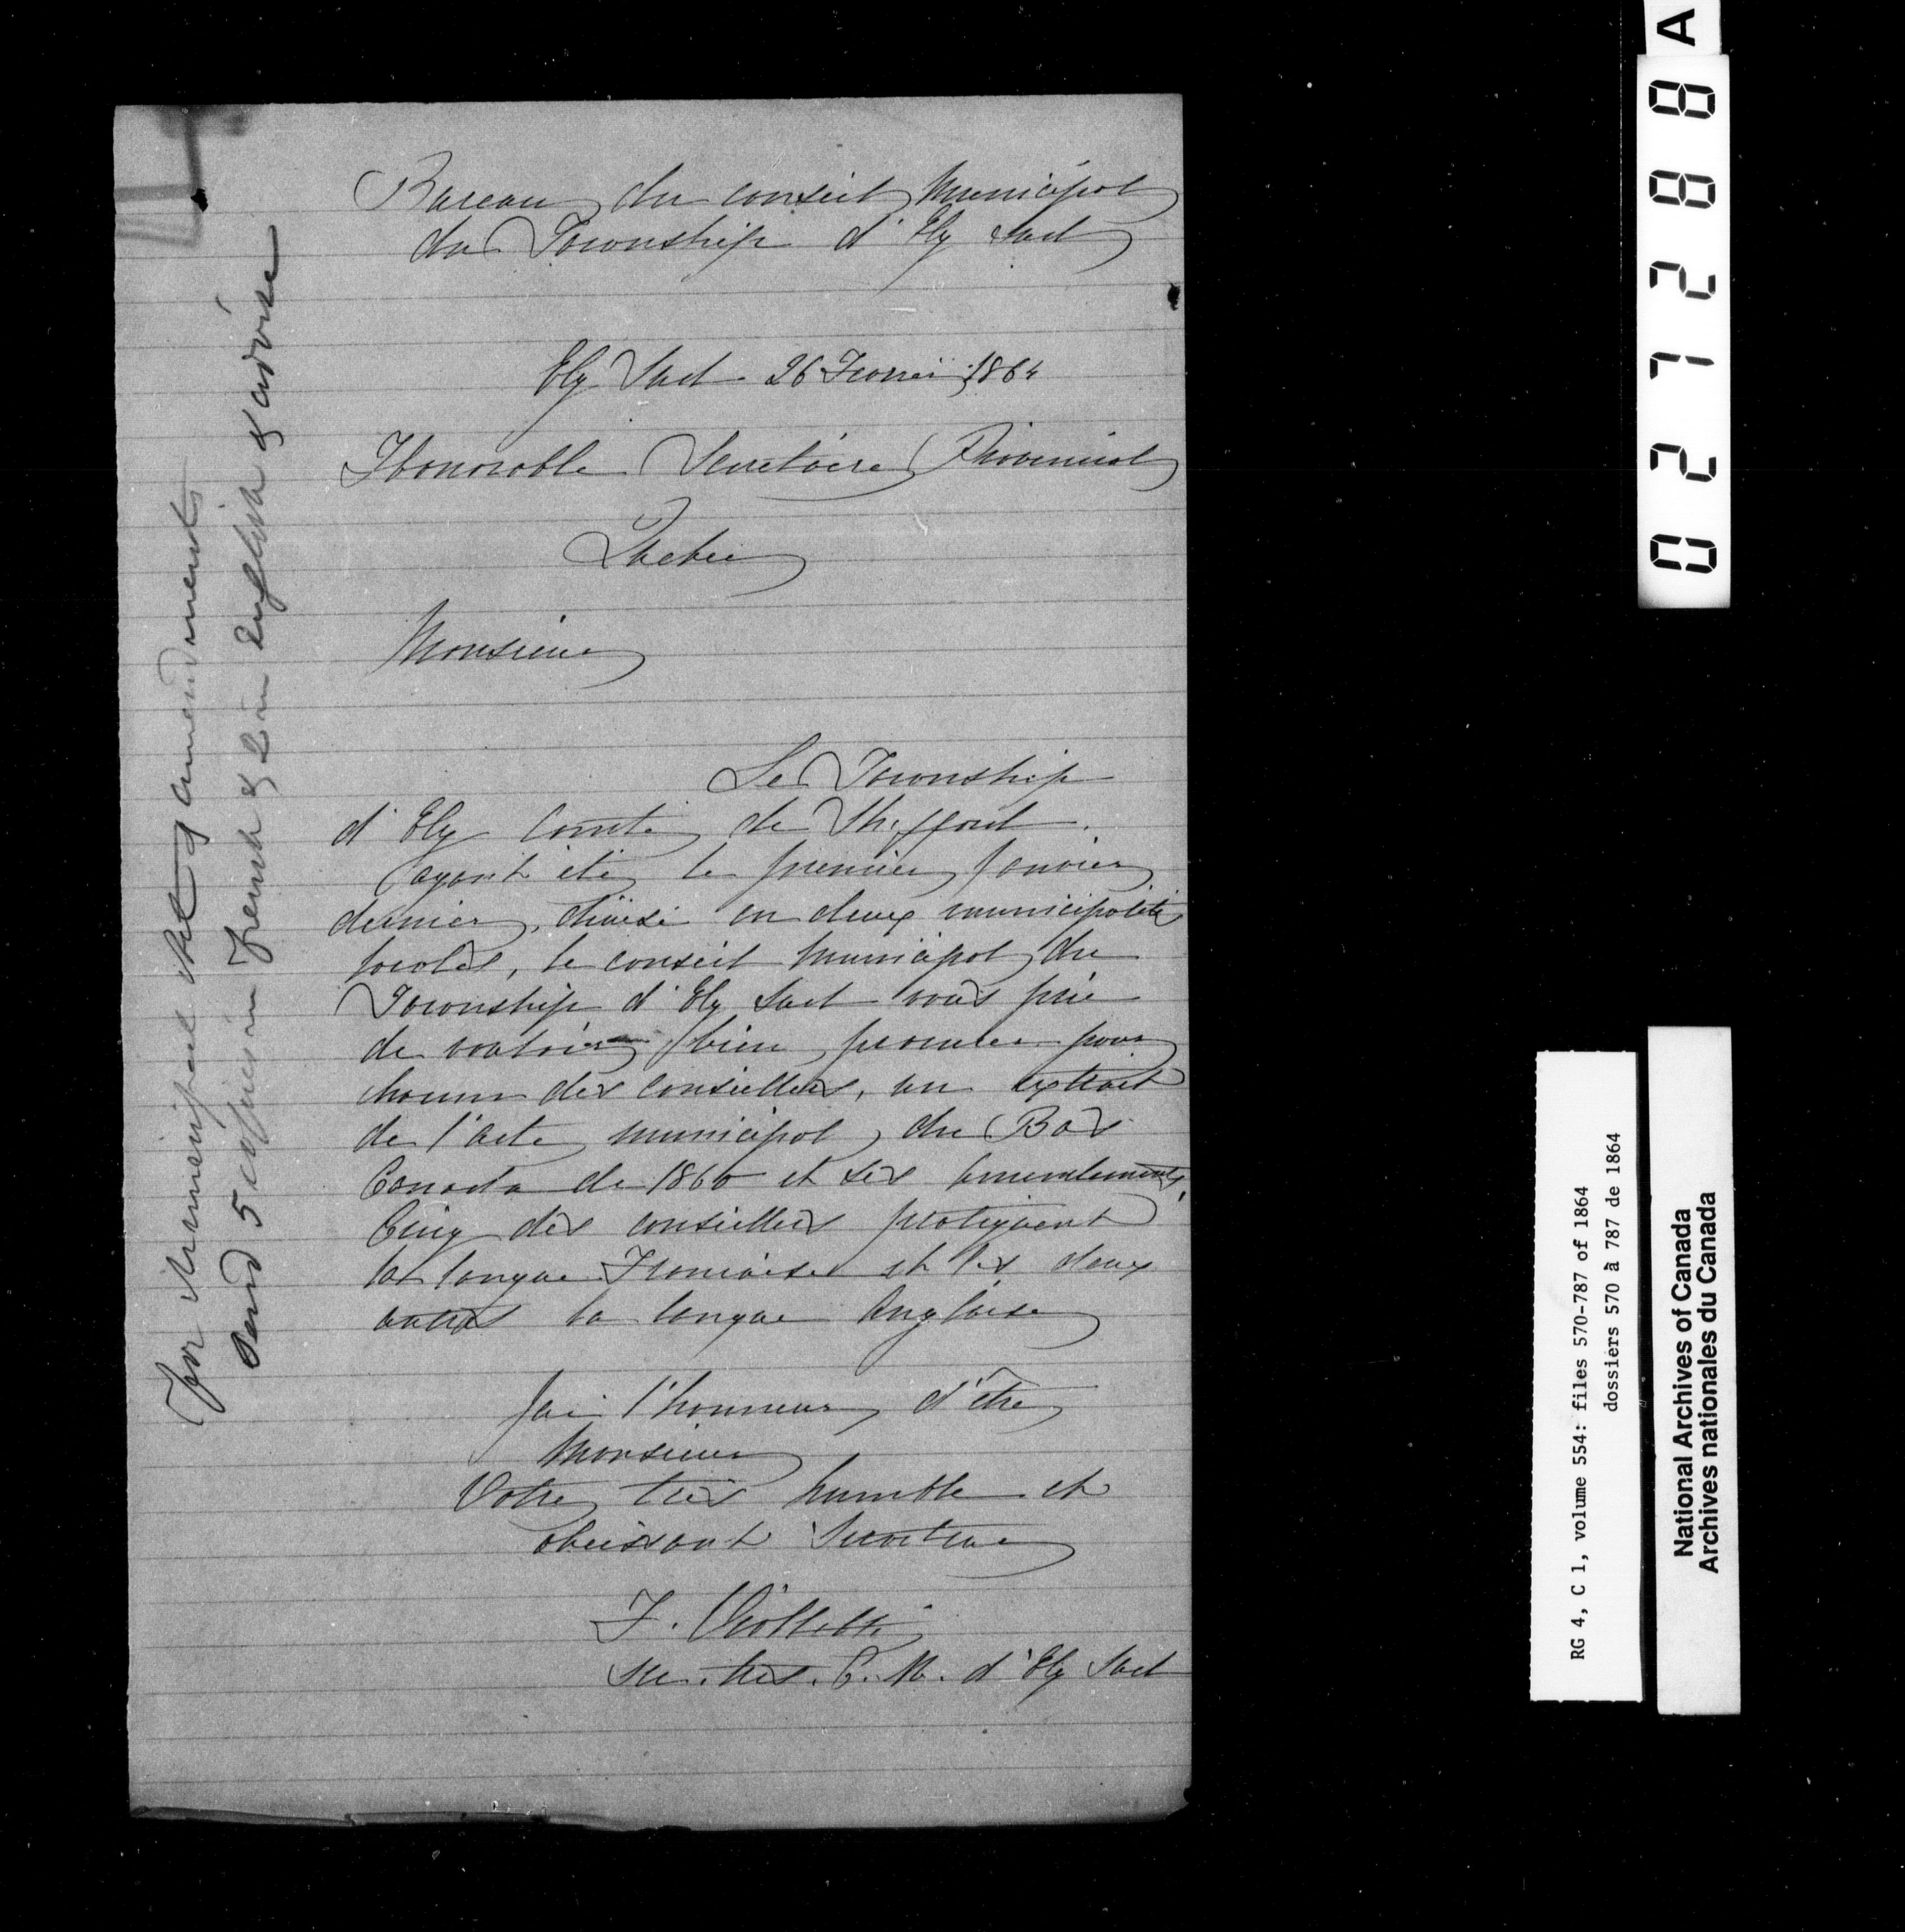 Bureau du conseil Municipal
du Township d'Ely Sud
Ely Sud 26 Fevrier 1864
Honorable Secretaire Provincial
Quebec
Monsieur
Le Township
d'Ely Comté de Shefford
ayant été le premier Janvier
dernier, divisé en deux municipalités
locales, le conseil Municipal du
Township d'Ely Sud vous prie
de vouloir bien procurer pour
chacun des conseillers, un extrait
de l'acte municipal du Bas
Canada de 1860 et ses amendements,
Cinq des conseillers pratiquent
la langue Francaise et les deux
autres la langue Anglaise
J'ai l'honneur d'être
Monsieur
Votre très humble et
obeissant Serviteur
F.
Sec. Tres. C. M. d'Ely Sud
for Municipal Act & amendments
Send 5 copies in French & 2 in English & advise
0 2 7 2 8 8 A
RG 4, C 1, volume 554: files 570-787 of 1864
dossiers 570 à 787 de 1864
National Archives of Canada
Archives nationales du Canada